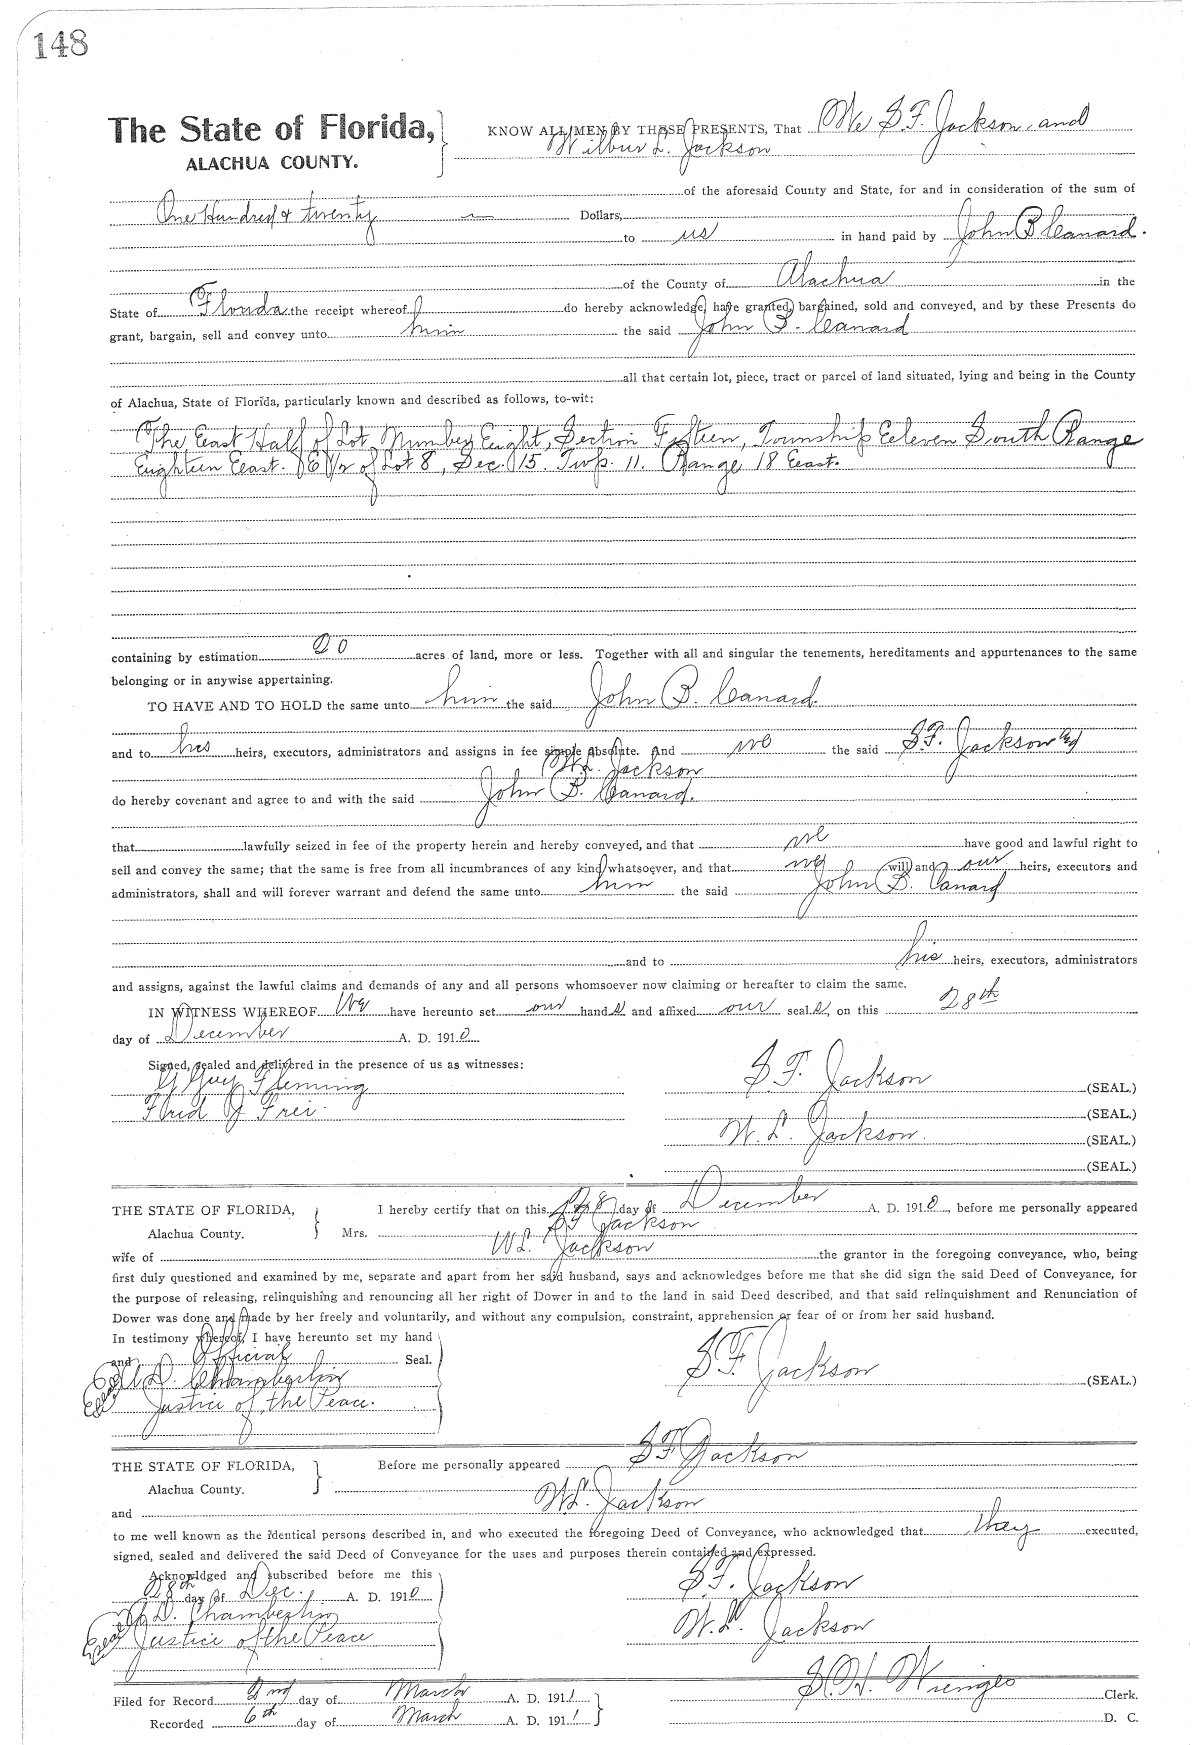 148
The State of Florida, KNOW ALL MEN BY THESE PRESENTS, That We S. F. Jackson and
ALACHUA COUNTY. Wilbur L. Jackson
of the aforesaid County and State, for and in consideration of the sum of
One Hundred & twenty Dollars,
to us in hand paid by John B Canard.
of the County of Alachua in the
State of Florida the receipt whereof do hereby acknowledge, have granted, bargained, sold and conveyed, and by these Presents do
grant, bargain, sell and convey unto him the said John B. Canard
all that certain lot, piece, tract or parcel of land situated, lying and being in the County
of Alachua, State of Florida, particularly known and described as follows, to-wit:
The East Half of Lot Number Eight, Section Fifteen, Township Eeleven South Range
Eighteen East. E 1/2 of Lot 8, Sec. 15. Twp. 11. Range 18 East.
containing by estimation 20 acres of land, more or less. Together with all and singular the tenements, hereditaments and appurtenances to the same
belonging or in anywise appertaining.
TO HAVE AND TO HOLD the same unto him the said John B. Canard.
and to his heirs, executors, administrators and assigns in fee simple absolute. And we the said S.F. Jackson and
W.L. Jackson
do hereby covenant and agree to and with the said John B. Canard.
that lawfully seized in fee of the property herein and hereby conveyed, and that we have good and lawful right to
sell and convey the same; that the same is free from all incumbrances of any kind whatsoever, and that we will and our heirs, executors and
administrators, shall and will forever warrant and defend the same unto him the said John B. Canard
and to his heirs, executors, administrators
and assigns, against the lawful claims and demands of any and all persons whomsoever now claiming or hereafter to claim the same.
IN WITNESS WHEREOF We have hereunto set our hands and affixed our seals, on this 28th
day of December A. D. 1910.
Signed, sealed and delivered in the presence of us as witnesses:
Guy Fleming S. F. Jackson (SEAL.)
J Frei. (SEAL.)
W. L. Jackson. (SEAL.)
(SEAL.)
THE STATE OF FLORIDA, I hereby certify that on this 28 day of December A. D. 1910, before me personally appeared
Alachua County. Mrs. S F Jackson
wife of W L. Jackson the grantor in the foregoing conveyance, who, being
first duly questioned and examined by me, separate and apart from her said husband, says and acknowledges before me that she did sign the said Deed of Conveyance, for
the purpose of releasing, relinquishing and renouncing all her right of Dower in and to the land in said Deed described, and that said relinquishment and Renunciation of
Dower was done and made by her freely and voluntarily, and without any compulsion, constraint, apprehension or fear of or from her said husband.
In testimony whereof, I have hereunto set my hand
and Official Seal. S F. Jackson
D. Chamberlin (SEAL.)
Seal Justice of the Peace.
THE STATE OF FLORIDA, Before me personally appeared S F Jackson
Alachua County.
and W.L. Jackson
to me well known as the identical persons described in, and who executed the foregoing Deed of Conveyance, who acknowledged that they executed,
signed, sealed and delivered the said Deed of Conveyance for the uses and purposes therein contained and expressed.
Acknowldged and subscribed before me this S.F. Jackson
28th day of Dec. A. D. 1910
D. Chamberlin W.L. Jackson
Seal Justice of the Peace
Filed for Record 2nd day of March A. D. 1911 S. H. Wienges Clerk.
Recorded 6th day of March A. D. 1911 D. C.